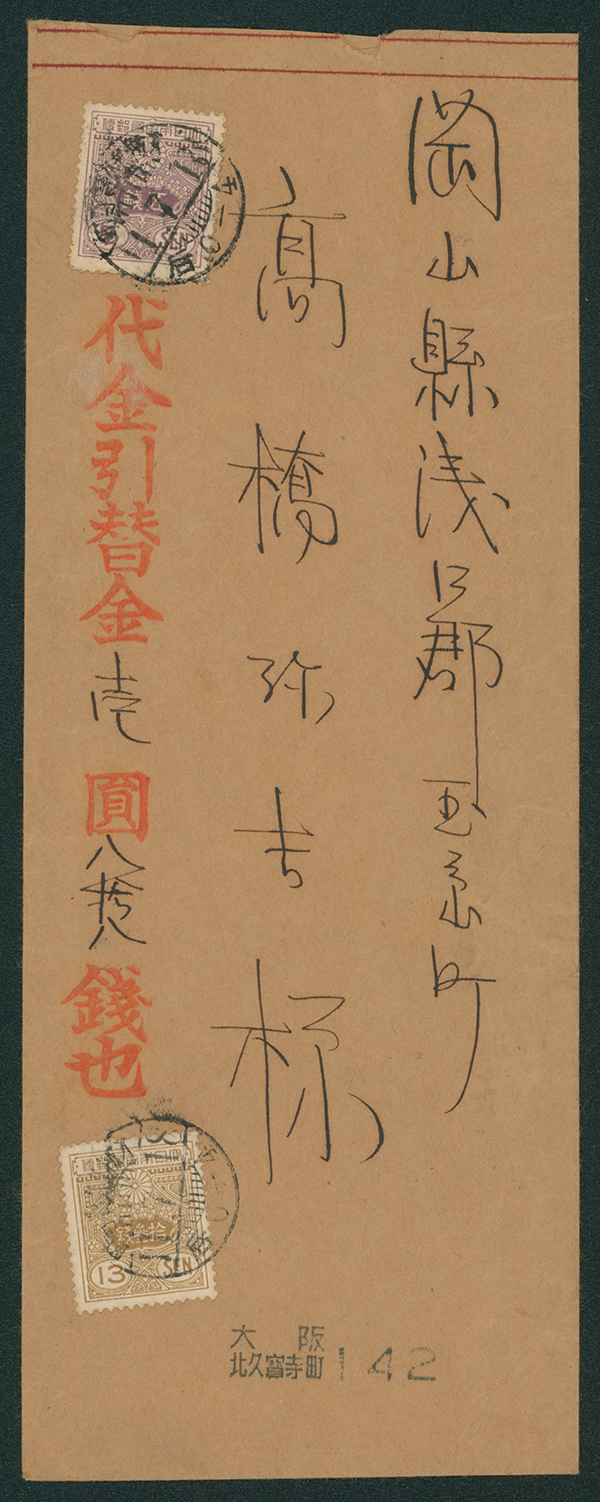 岡山縣浅口郡玉島町
高橋弥吉様
代金引替金壱圓八拾八錢也
拾參錢
13 SEN
大阪
北久寳寺町 142